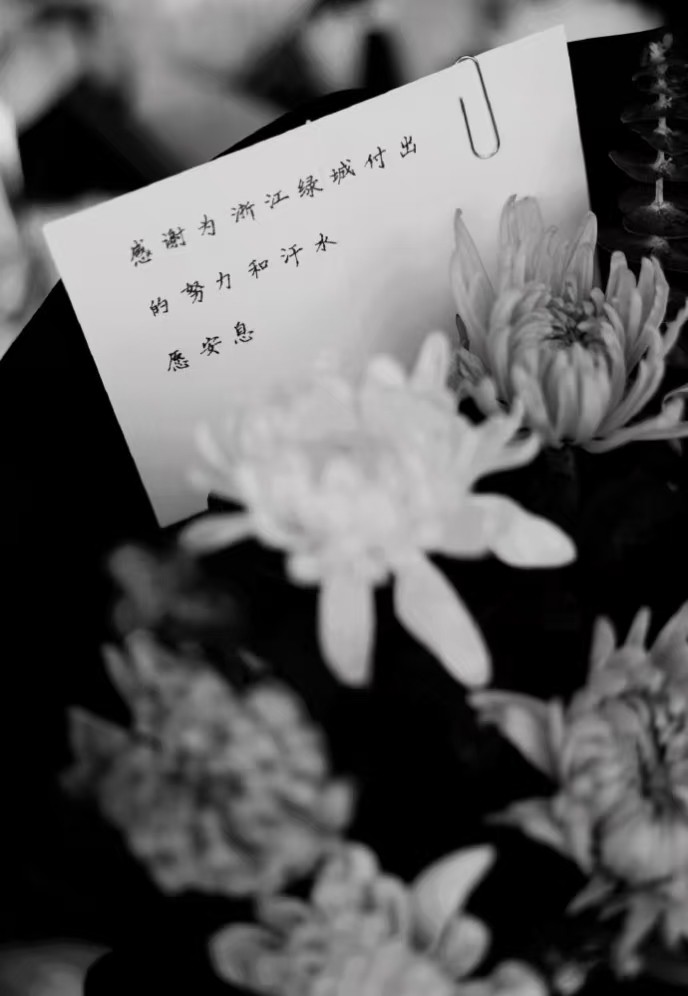 感谢为浙江绿城付出
的努力和汗水
愿安息